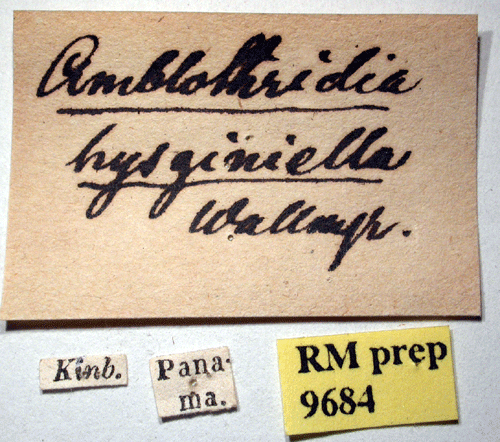 Amblothridia
hysginiella
Wallengr.
Kinb.
Pana-
ma.
RM prep
9684